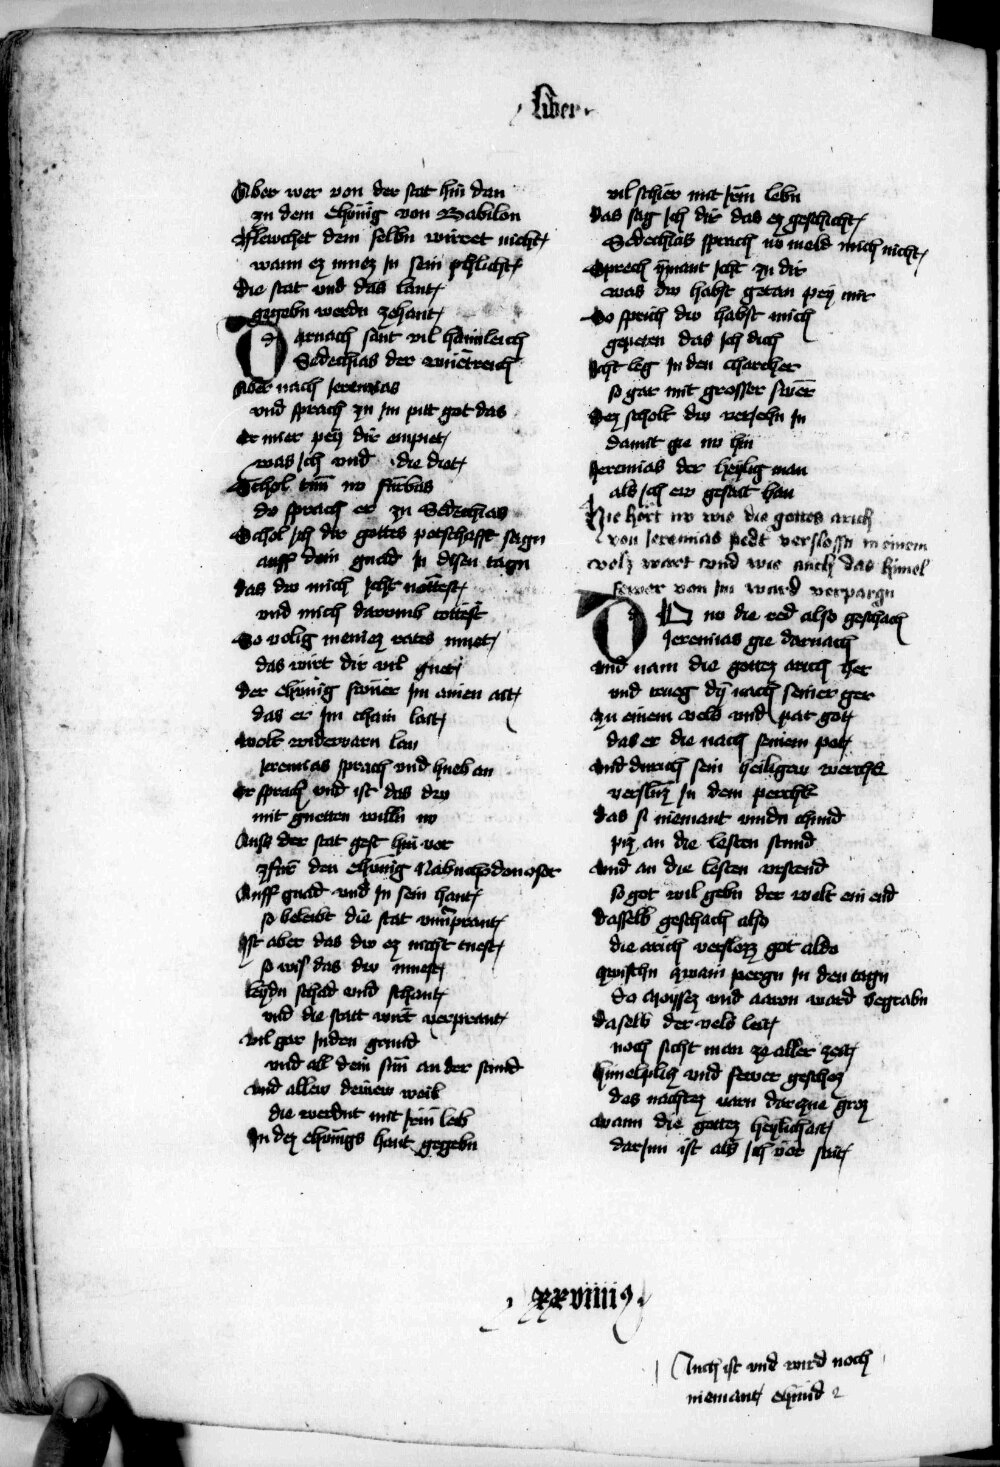 Liber
Aber wer von der stat hin dan
zu dem chünig von Babilon
Flewchet dem selbn wirret nicht
wann ez muez In sein phlicht
die stat und das lant
gegebn werdn zehant
Darnach sant vil haimleich
Sedechias der wuetreich
Aber nach Jeremias
und sprach zu Im pitt got das
Er mier pey dir enpiet
was Ich und die diet
Schol tun no fürbas
do sprach er zu Sedechias
Schol Ich dir gottes potschafft sagn
auff dein gnad In disen tagn
das dw mich Icht nöttest
und mich darumb töttest
So volig meinez rates muet
das wirt dir vil guet
der chünig swuer Im ainen ait
das er Im chain lait
wolt widervarn lan
Jeremias sprach und hueb an
Er sprach und ist das dw
mit guetten willn no
Auss der stat gest hin vor
für den chünig Nabuchodonosor
Auff gnad und In sein hant
so beleibt die stat unuerprant
Ist aber das dw ez nicht tuest
so wis das dw muest
leydn schad und schant
und die statt wirt verprant
vil gar In den grund
und all dein sun an der stund
und allew deinew weib
die werdnt mit Irem leib
In dez chünigs hant gegebn
vil schier mit Irem lebn
das sag Ich dir das ez geschicht
Sedechias sprach no meld mich nicht
Sprech yemant Icht zu dir
was dw habst getan pey mir
So sprich dw habst mich
gepeten das Ich dich
Icht leg In den charcher
so gar mit grosser swer
Dez scholt dw veriehn In
damit gie no hin
Jeremias der heylig man
als Ich ew gesait han
Hie hört no wie die gottes arich
von Jeremias pedt verslossn in einem
velz wart und wie auch das himel
fewer von Im ward verpargn
Do no die red also geschach
Jeremias gie darnach
und nam die gottez arich her
und trueg dy nach seiner ger
zu einem vels und pat got
das er die nach seinem pot
und durich sein heiligew werch
versluz In dem perch
das si niemant vindn chund
piz an die lesten stund
und an die lesten urstend
so got wil gebn der welt ein end
dasselb geschach also
die arich verslozz got aldo
zwischn zwain pergn In den tagn
do Moysez und Aaron ward begrabn
daselb der vels leit
noch sicht man ze aller zeit
himelplig und fewer geschoz
des nachtez varn darzue groz
wann die gottez heylichait
darInn ist als Ich vor sait
xxviiii
Auch ist und wird noch
niemant chund